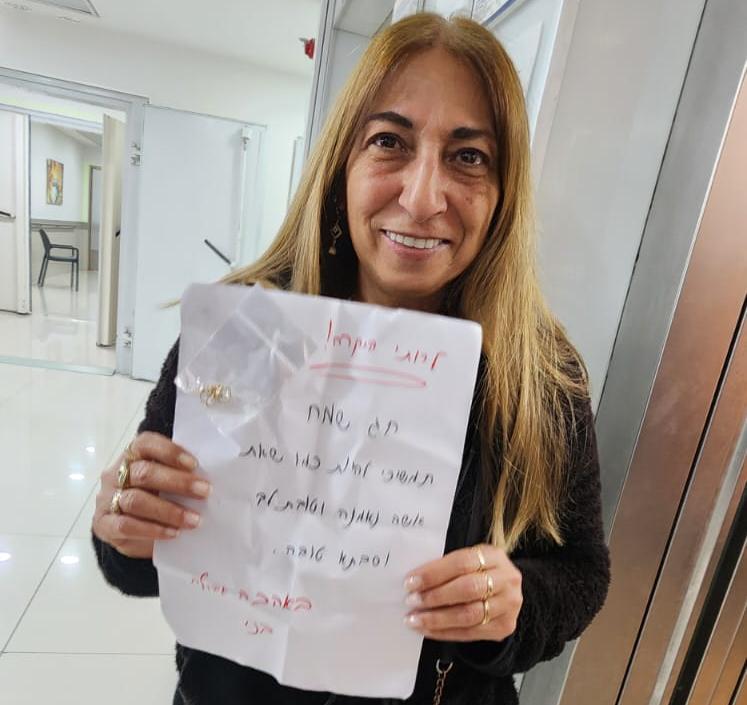 לרותי היקרה!
חג שמח
תמשיכי להיות כמו שאת
אישה נאמנה וטובת לב
וסבתא טובה.
באהבה גדולה
בני